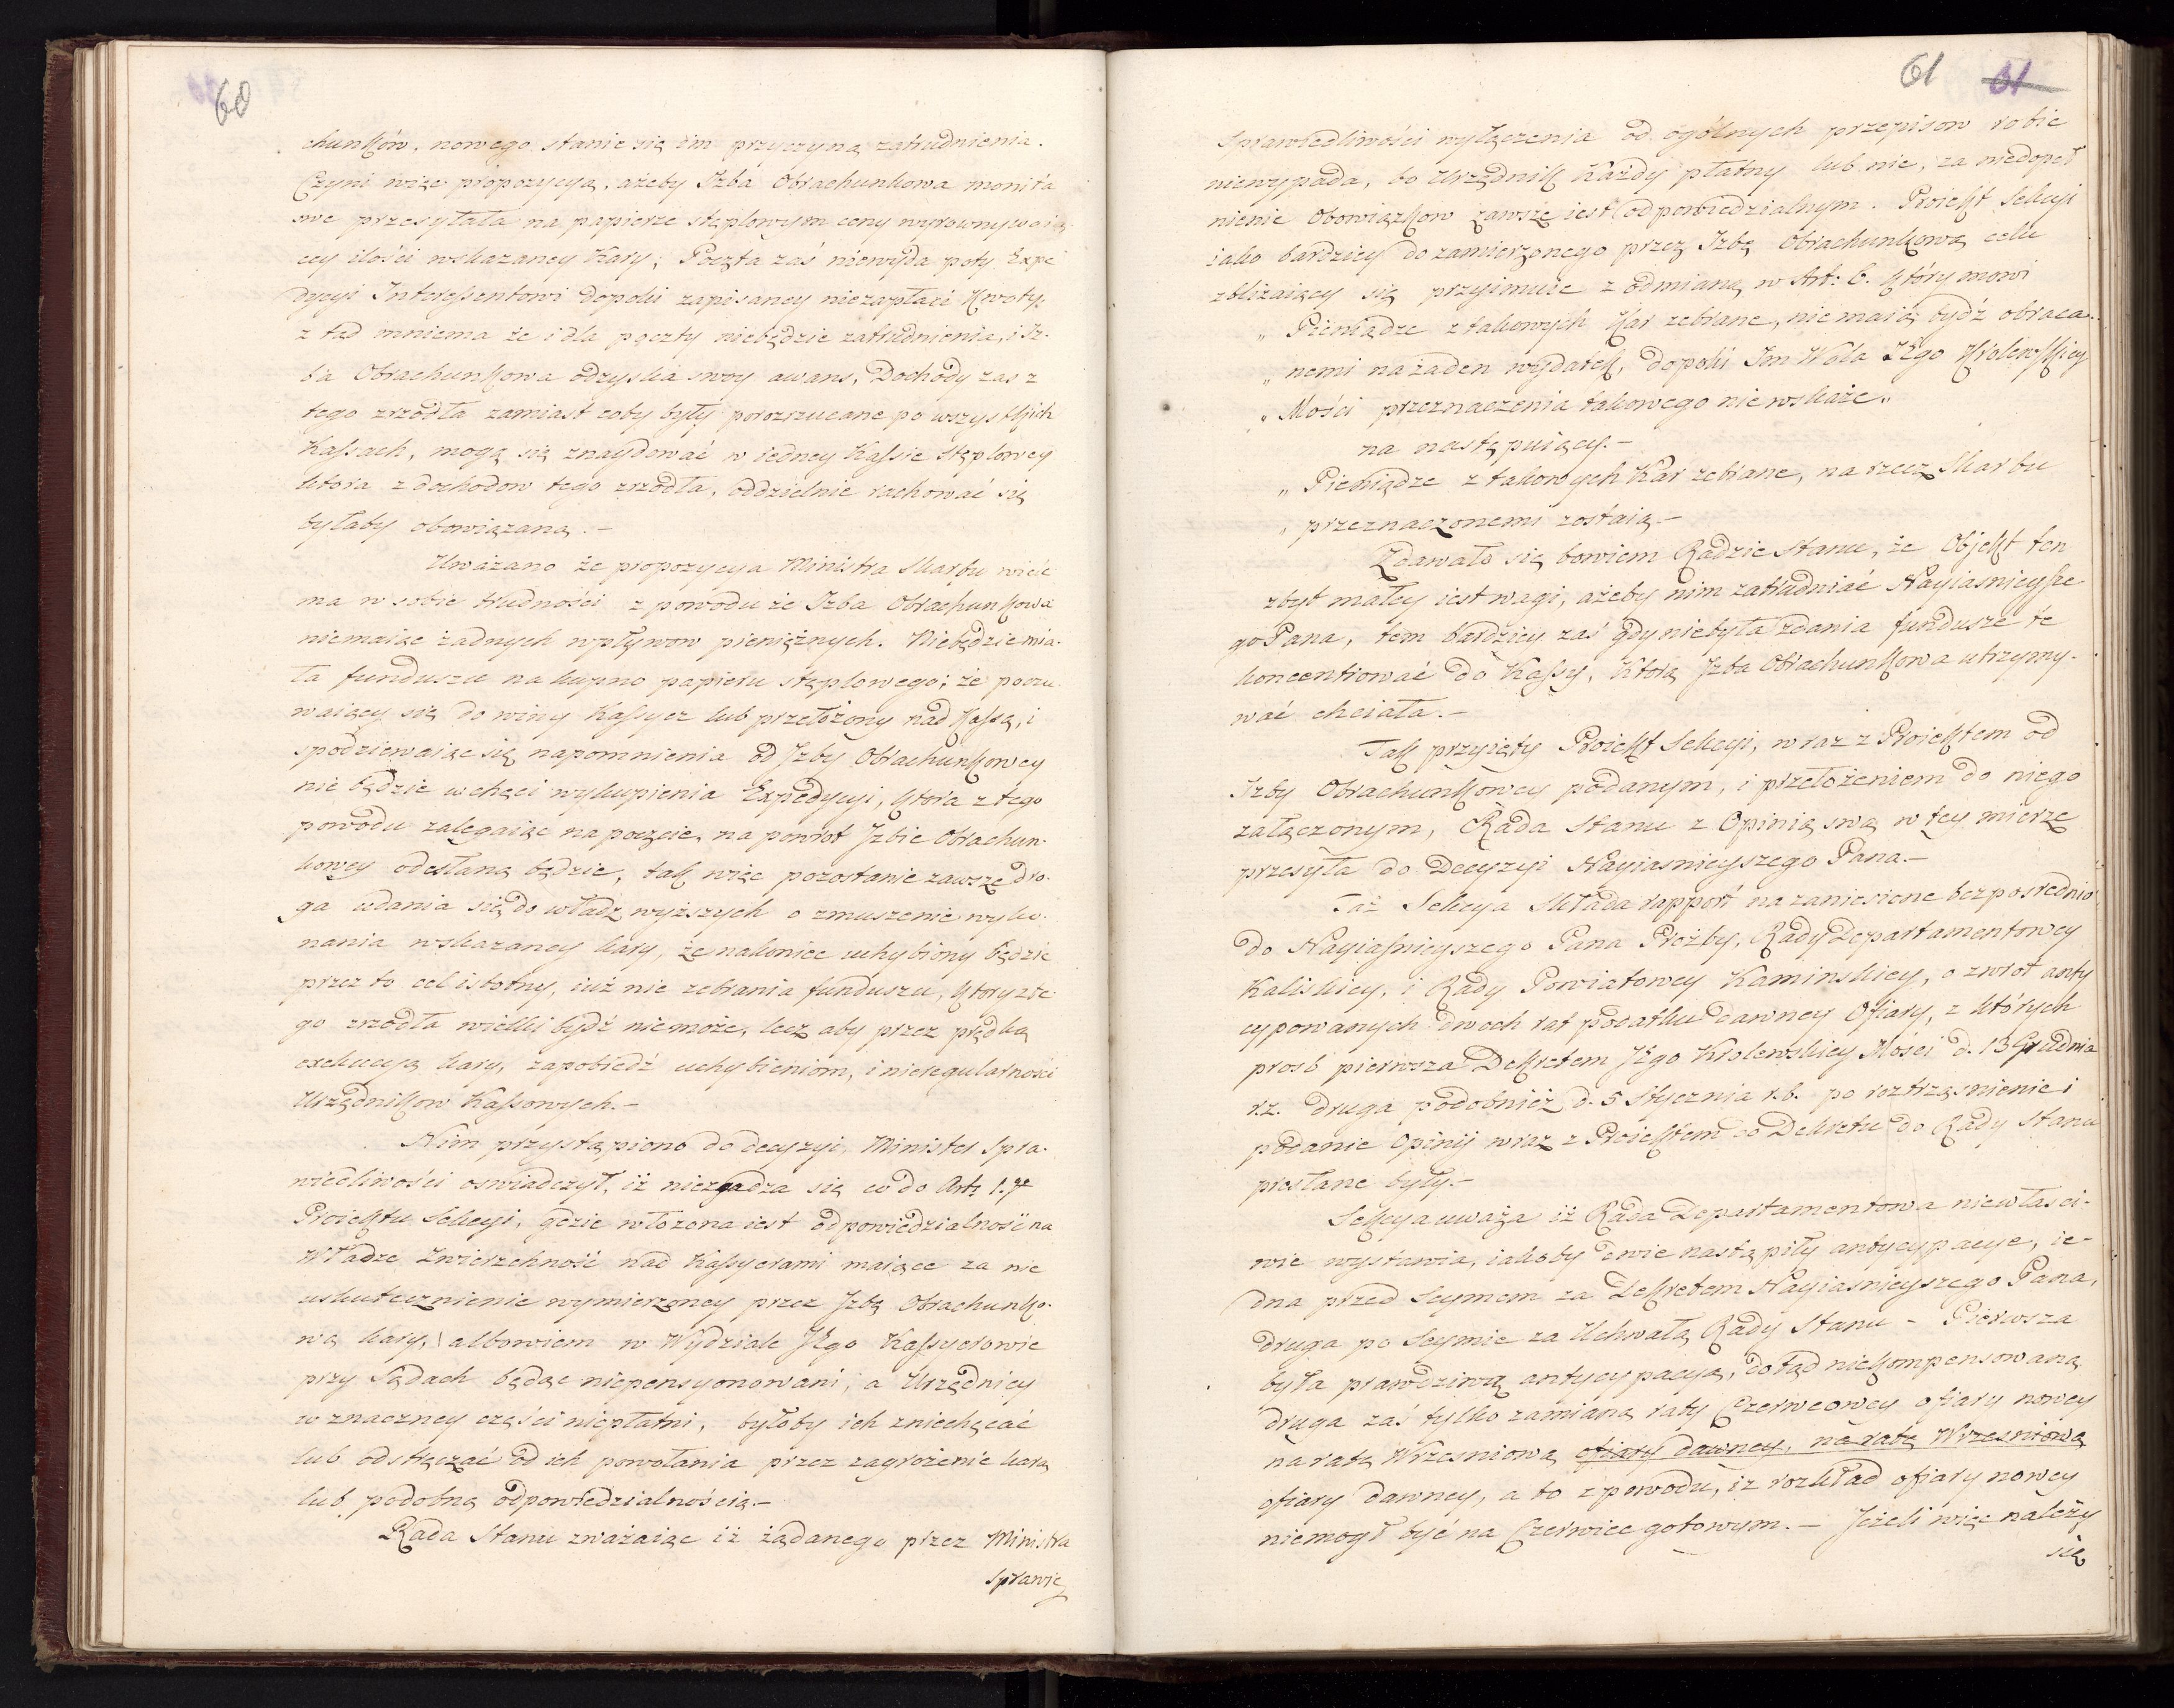 60
chunków, nowego stanie się im przyczyną zatrudnienia.
Czyni więc propozycyą, ażeby Izba Obrachunkowa monita
swe przesyłała na papierze stęplowym ceny wyrownywaią-
cey ilości wskazaney Kary; Poczta zaś niewyda poty Expe
dycyi Interessentowi dopoki zapisaney niezapłaci Kwoty;
z tąd mniema że i dla poczty niebędzie zatrudnienia, i Iz-
ba Obrachunkowa odzyska swoy awans, Dochody zas z
tego zrzodła zamiast coby były porozrzucane po wszystkich
Kassach, mogą się znaydować w iedney Kassie Stęplowey
ktora z dochodow tego zrzodła, oddzielnie rachować się
byłaby obowiązaną.-
Uważano że propozycya Ministra Skarbu wiele
ma w sobie trudności z powodu że Izba Obrachunkowa
niemaiąc żadnych wpływow pieniężnych. Niebędzie mia-
ła funduszu na kupno papieru stęplowego; że poczu
waiący się do winy Kassyer lub przełożony nad Kassą, i
spodziewaiąc się napomnienia od Izby Obrachunkowey
nie będzie w chęci wykupienia Expedycyi, ktora z tego
powodu zalegaiąc na poczcie, na powrot Izbie Obrachun-
kowey odesłaną będzie, tak więc pozostanie zawsze dro-
ga udania się do władz wyższych o zmuszenie wyko-
nania wskazaney kary, że nakoniec uchybiony będzie
przez to cel istotny, iuż nie zebrania funduszu, ktory z te-
go zrzodła wielki bydź niemoże, lecz aby przez prędką
exekucyą kary, zapobiedź uchybieniom, i nieregularności
Urzędnikow Kassowych.-
Nim przystąpiono do decyzyi, Minister Spra-
wiedliwości oswiadczył, iż niezgadza się co do Art: 1.go
Proiektu Sekcyi, gdzie włożona iest odpowiedzialność na
Władze Zwierzchność nad Kassyerami maiące za nie
uskutecznienie wymierzoney przez Izbę Obrachunko-
wą kary, albowiem w Wydziale Jego Kassyerowie
przy Sądach będąc niepensyonowani, a Urzędnicy
w znaczney części niepłatni, byłoby ich zniechęcać
lub odstręczać od ich powołania przez zagrożenie karą
lub podobną odpowiedzialnością.-
Rada Stanu zważaiąc iż żądanego przez Ministra
Sprawie
61 61
Sprawiedliwości wyłączenia od ogólnych przepisow robić
niewypada, bo Urzędnik Każdy płatny lub nie, za niedopeł
nienie Obowiązkow zawsze iest odpowiedzialnym. Proiekt Sekcyi
iako bardziey do zamierzonego przez Izbę Obrachunkową celu
zbliżaiący się przyimuie z odmianą w Art: 6. który mowi
„ Pieniądze z takowych Kar zebrane, nie maią bydź obraca-
„ nemi na żaden wydatek, dopoki Im Wola JKgo Krolewskiey
„ Mości przeznaczenia takowego nie wskaże„
na następuiący.-
„ Pieniądze z takowych Kar zebrane, na rzecz Skarbu
„ przeznaczonemi zostaią.-
Zdawało się bowiem Radzie Stanu, że Objekt ten
zbyt małey iest wagi, ażeby nim zatrudniać Nayiasnieysze-
go Pana, tem bardziey zaś gdy niebyła zdania fundusze te
koncentrować do Kassy, Ktorą Izba Obrachunkowa utrzymy-
wać chciała.-
Tak przyięty Proiekt Sekcyi, wraz z Proiektem od
Izby Obrachunkowey podanym, i przełożeniem do niego
załączonym, Rada Stanu z Opinią swą w tey mierze
przesyła do Decyzyi Nayiasnieyszego Pana.-
Taż Sekcya Składa rapport na zaniesione bezposrednio
do Nayiasnieyszego Pana Prożby, Rady Departamentowey
Kaliskiey, i Rady Powiatowey Kaminskiey, o zwrot anty
cypowanych dwoch rat podatku dawney Ofiary, z których
prosb pierwsza Dekretem JKgo Krolewskiey Mości d. 13 Grudnia
r.z. druga podobnież d. 5 Stycznia r.b. po roztrząsnienie i
podanie Opinij wraz z Proiektem do Dekretu do Rady Stanu
przesłane były.-
Sekcya uważa iż Rada Departamentowa niewłasci-
wie wystawia, iakoby dwie nastąpiły antycypacye, ie-
dna przed Seymem za Dekretem Nayiasnieyszego Pana,
druga po Seymie za Uchwałą Rady Stanu - Pierwsza
była prawdziwą antycypacyą, dotąd niekompensowaną,
druga zaś tylko zamianą raty Czerwcowey ofiary nowey
na ratę Wrzesniową ofiary dawney, na ratę Wrzesniową
ofiary dawney, a to z powodu, iż rozkład ofiary nowey
niemogł być na Czerwiec gotowym.- Jeżeli więc należy
się